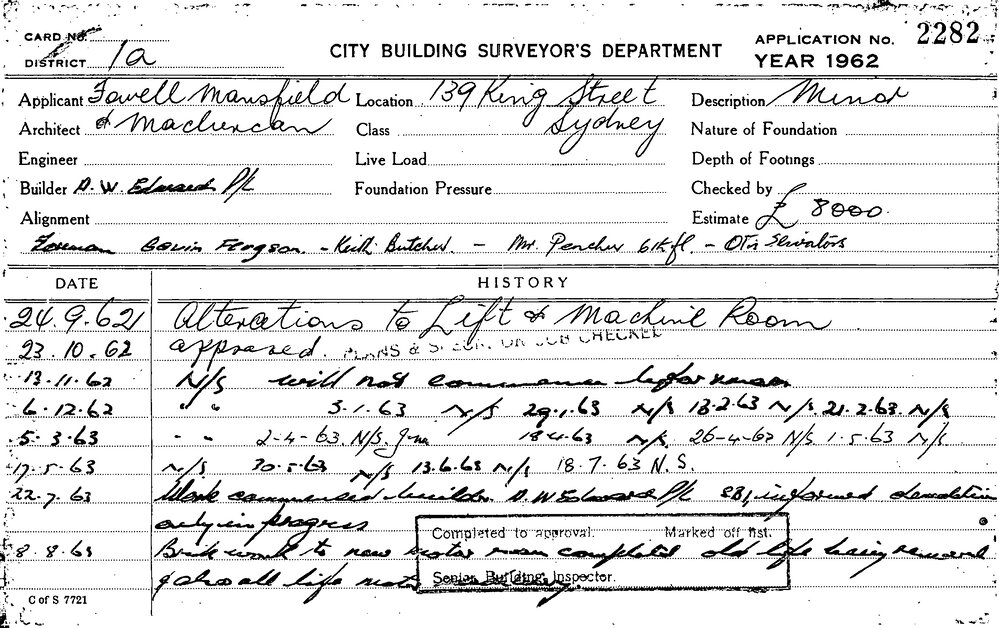 CARD No.
DISTRICT 1a
CITY BUILDING SURVEYOR'S DEPARTMENT
APPLICATION No. 2282
YEAR 1962
Applicant Fowell Mansfield Location 139 King Street Description Minor
Architect & Maclurcan Class Sydney Nature of Foundation
Engineer Live Load Depth of Footings
Builder A. W. Edwards P/L Foundation Pressure Checked by
Alignment Estimate £ 8000
Foreman Gavin Fergson. - Keith Butcher. - Mr. Percher 6th fl. - Otis Elivators
DATE HISTORY
24.9.62 Alterations to Lift & Machine Room
23.10.62 approved. PLANS & SPECN. ON JOB CHECKED
13.11.62 N/S will not commence
6.12.62 " " 3.1.63 N/S 29.1.63 N/S 13.2.63 N/S. 21.2.63. N/S
5.3.63 " " 2-4-63 N/S. 18.4.63 N/S. 26-4-63 N/S 1.5.63 N/S
17.5.63 N/S 30.5.63 N/S 13.6.63 N/S 18.7.63 N.S.
22.7.63 Work commenced builder A. W Edwards P/L informed demolition
only in progress
8.8.63 Brickwork to new motor room completed old being removed
Completed to approval. Marked off list.
Senior Building Inspector.
C of S 7721